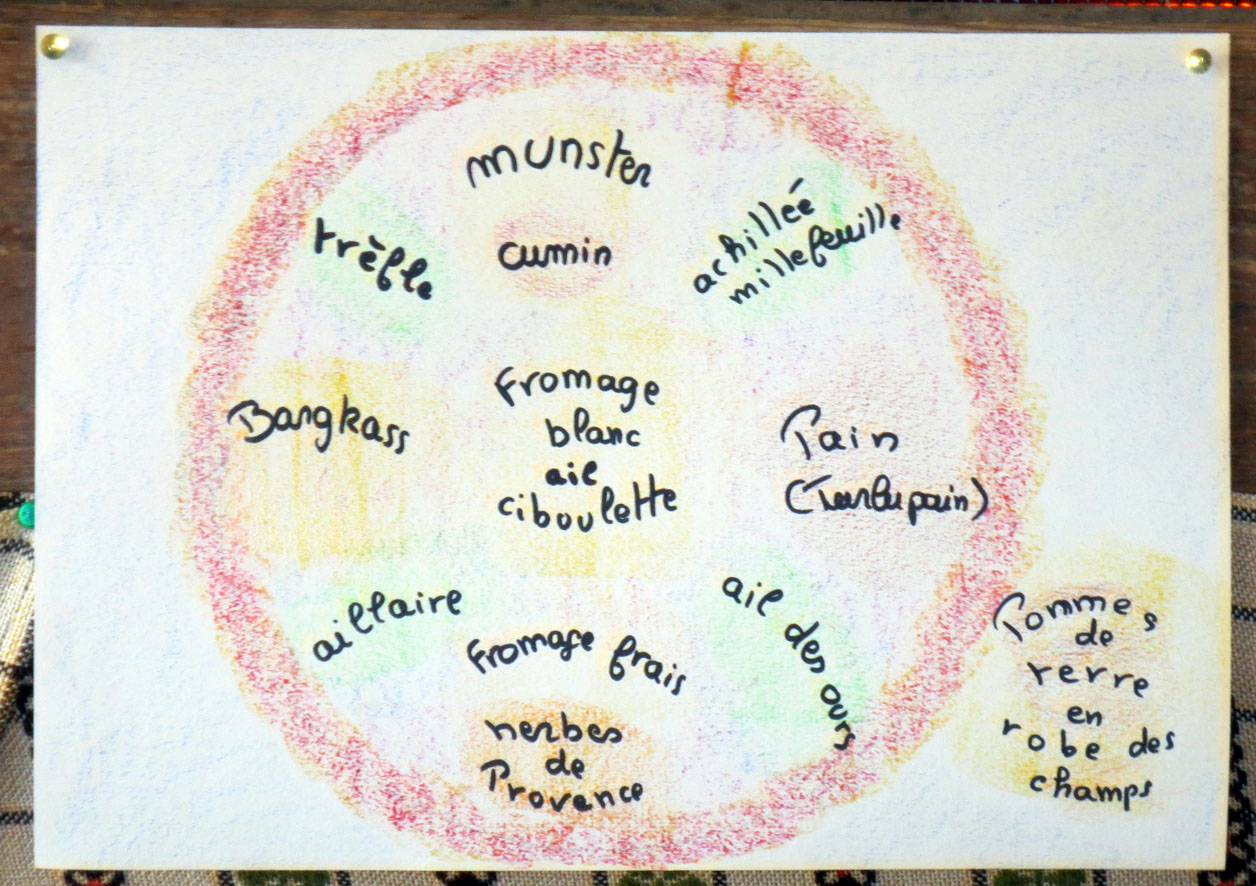 munster
cumin
trèfle
achillée
millefeuille
Bangkass
Fromage
blanc
ail
ciboulette
Pain
(Turlupain)
aillaire
Fromage frais
herbes
de
Provence
ail des ours
Pommes
de
terre
en
robe des
champs